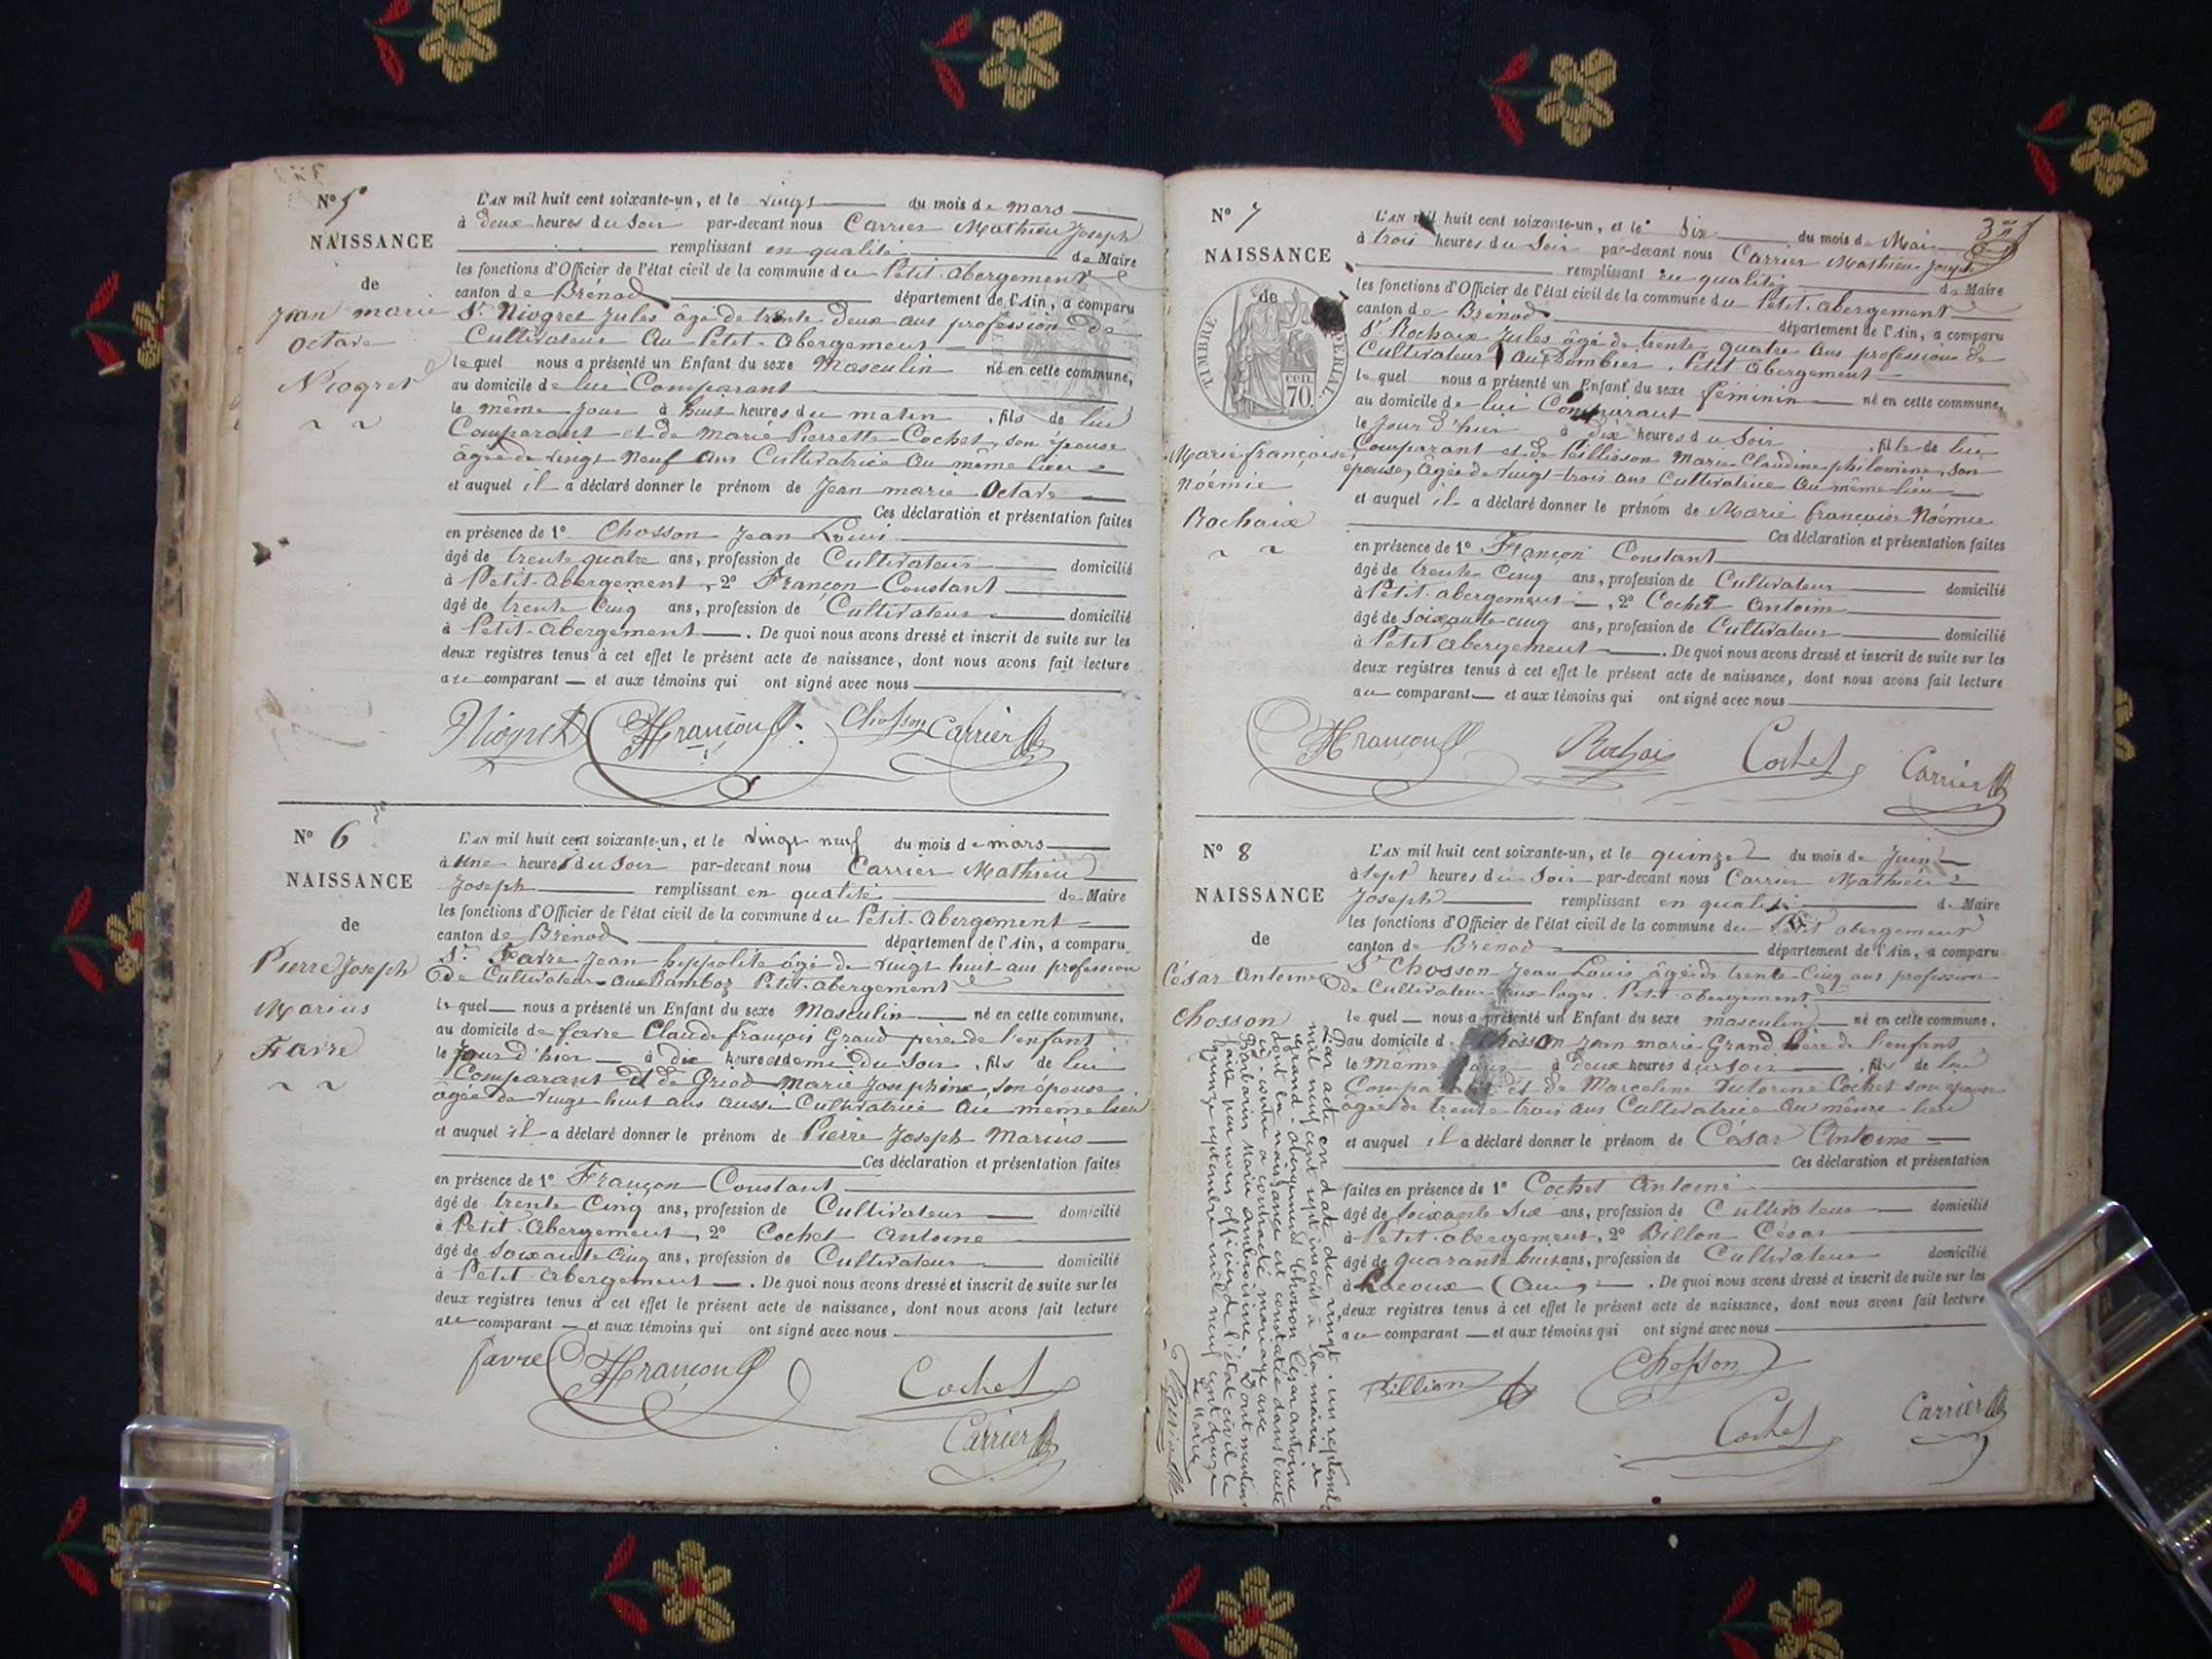 N° 5
NAISSANCE
de
Jean marie
Octave
Niogret
L'AN mil huit cent soixante-un, et le vingt du mois de mars
à deux heures du Soir par-devant nous Carrier Mathieu Joseph
remplissant en qualité de Maire
les fonctions d'Officier de l'état civil de la commune du Petit-Abergement
canton de Brénod département de l'Ain, a comparu
Sr. Niogret Jules âgé de trente deux ans profession de
Cultivateur Au Petit-Abergement
lequel nous a présenté un Enfant du sexe Masculin né en cette commune,
au domicile de lui Comparant
le même jour à huit heures du matin, fils de lui
Comparant et de Marie Pierrette Cochet, son épouse
âgée de vingt Neuf ans Cultivatrice Au même lieu
et auquel il a déclaré donner le prénom de Jean marie Octave
Ces déclaration et présentation faites
en présence de 1° Chosson Jean Louis
âgé de trente quatre ans, profession de Cultivateur domicilié
à Petit-Abergement, 2° Françon Constant
âgé de trente Cinq ans, profession de Cultivateur domicilié
à Petit-Abergement. De quoi nous avons dressé et inscrit de suite sur les
deux registres tenus à cet effet le présent acte de naissance, dont nous avons fait lecture
au comparant et aux témoins qui ont signé avec nous
Niogret Françon Chosson Carrier
N° 6
NAISSANCE
de
Pierre Joseph
Marius
Favre
L'AN mil huit cent soixante-un, et le vingt neuf du mois de mars
à une heure du Soir par-devant nous Carrier Mathieu
Joseph remplissant en qualité de Maire
les fonctions d'Officier de l'état civil de la commune du Petit-Abergement
canton de Brénod département de l'Ain, a comparu
Sr. Favre Jean hippolite âgé de vingt huit ans profession
de Cultivateur Aux Petit-Abergement
lequel nous a présenté un Enfant du sexe Masculin né en cette commune,
au domicile de favre Claude François Grand père de l'enfant
le jour d'hier à dix heures et demi du Soir, fils de lui
Comparant et de Griod Marie Josephine, son épouse
âgée de vingt huit ans aussi Cultivatrice Au même lieu
et auquel il a déclaré donner le prénom de Pierre Joseph Marius
Ces déclaration et présentation faites
en présence de 1° Françon Constant
âgé de trente Cinq ans, profession de Cultivateur domicilié
à Petit-Abergement, 2° Cochet Antoine
âgé de Soixante Cinq ans, profession de Cultivateur domicilié
à Petit-Abergement. De quoi nous avons dressé et inscrit de suite sur les
deux registres tenus à cet effet le présent acte de naissance, dont nous avons fait lecture
au comparant et aux témoins qui ont signé avec nous
favre Françon Cochet
Carrier
N° 7
NAISSANCE
de
TIMBRE IMPÉRIAL
70 cen.
Marie françoise
Noémie
Rochaix
L'AN mil huit cent soixante-un, et le Six du mois de Mai
à trois heures du Soir par-devant nous Carrier Mathieu Joseph
remplissant en qualité de Maire
les fonctions d'Officier de l'état civil de la commune du Petit-abergement
canton de Brénod département de l'Ain, a comparu
Sr Rochaix Jules âgé de trente quatre ans profession de
Cultivateur Petit abergement
lequel nous a présenté un Enfant du sexe féminin né en cette commune,
au domicile de lui Comparant
le jour d'hier à dix heures du Soir, fille de lui
Comparant et de Pellisson Marie Claudine philomine, son
épouse, âgée de vingt trois ans Cultivatrice Au même lieu
et auquel il a déclaré donner le prénom de Marie françoise Noémie
Ces déclaration et présentation faites
en présence de 1° Françon Constant
âgé de trente Cinq ans, profession de Cultivateur domicilié
à Petit-abergement, 2° Cochet Antoine
âgé de Soixante cinq ans, profession de Cultivateur domicilié
à Petit abergement. De quoi nous avons dressé et inscrit de suite sur les
deux registres tenus à cet effet le présent acte de naissance, dont nous avons fait lecture
au comparant et aux témoins qui ont signé avec nous
Françon Rochaix Cochet Carrier
N° 8
NAISSANCE
de
César Antoine
Chosson
L'AN mil huit cent soixante-un, et le quinze du mois de Juin
à sept heures du Soir par-devant nous Carrier Mathieu
Joseph remplissant en qualité de Maire
les fonctions d'Officier de l'état civil de la commune du Petit abergement
canton de Brénod département de l'Ain, a comparu
Sr Chosson Jean Louis âgé de trente-Cinq ans profession
de Cultivateur aux loges Petit abergement
lequel nous a présenté un Enfant du sexe masculin né en cette commune,
au domicile de Chosson Jean marie Grand Père de l'enfant
le Même jour à deux heures du soir, fils de lui
Comparant et de Marceline Cochet son épouse
âgée de trente trois ans Cultivatrice Au même lieu
et auquel il a déclaré donner le prénom de César Antoine
Ces déclaration et présentation
faites en présence de 1° Cochet Antoine
âgé de soixante Six ans, profession de Cultivateur domicilié
à Petit-abergement, 2° Billon César
âgé de quarante huit ans, profession de Cultivateur domicilié
à Lacoux (Ain). De quoi nous avons dressé et inscrit de suite sur les
deux registres tenus à cet effet le présent acte de naissance, dont nous avons fait lecture
au comparant et aux témoins qui ont signé avec nous
Billion Chosson
Cochet Carrier
Par acte en date du vingt-un septembre
mil neuf cent sept inscrit à la mairie de
Grand-abergement Chosson César antoine
dont la naissance est constatée dans l'acte
ci-contre a contracté mariage avec
Marie ambroisine. Dont mention
faite par nous officier de l'état civil le
quinze septembre mil neuf cent douze
Le Maire